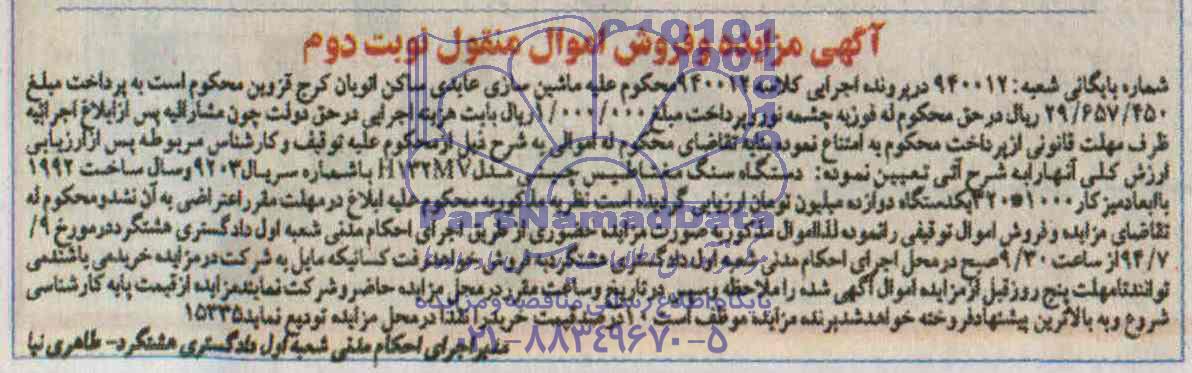 آگهی مزایده و فروش اموال منقول نوبت دوم
شماره بایگانی شعبه: ۹۴۰۰۱۲ درپرونده اجرایی کلاسه ۹۴۰۰۱۲ محکوم علیه ماشین سازی عابدی ساکن اتوبان کرج قزوین محکوم است به پرداخت مبلغ
۲۹/۶۵۷/۴۵۰ ریال در حق محکوم له فوزیه چشمه نور و پرداخت مبلغ ۱/۰۰۰/۰۰۰ ریال بابت هزینه اجرایی در حق دولت چون مشارالیه پس از ابلاغ اجرائیه
ظرف مهلت قانونی از پرداخت محکوم به امتناع نموده بنابه تقاضای محکوم له اموالی به شرح ذیل از محکوم علیه توقیف و کارشناس مربوطه پس از ارزیابی
ارزش کلی آنها را به شرح آتی تعیین نموده: دستگاه سنگ مغناطیس چینی مدل H۱۳۲MV با شماره سریال ۹۲۰۳ و سال ساخت ۱۹۹۲
با ابعاد میز کار ۱۰۰۰*۳۲۰ یکدستگاه دوازده میلیون تومان ارزیابی گردیده است نظریه مذکور به محکوم علیه ابلاغ در مهلت مقرر اعتراضی به آن نشد و محکوم له
تقاضای مزایده و فروش اموال توقیفی را نموده لذا اموال مذکور به صورت مزایده حضوری از طریق اجرای احکام مدنی شعبه اول دادگستری هشتگرد در مورخ ۹/
۹۴/۷ از ساعت ۹/۳۰ صبح در محل اجرای احکام مدنی شعبه اول دادگستری هشتگرد به فروش خواهد رفت کسانیکه مایل به شرکت در مزایده خرید می باشند می
توانند تا مهلت پنج روز قبل از مزایده اموال آگهی شده را ملاحظه و سپس در تاریخ و ساعت مقرر در محل مزایده حاضر و شرکت نمایند مزایده از قیمت پایه کارشناسی
شروع و به بالاترین پیشنهاد فروخته خواهد شد برنده مزایده موظف است ۱۰ درصد قیمت خرید را نقدا در محل مزایده تودیع نماید ۱۵۲۳۵
مدیر اجرای احکام مدنی شعبه اول دادگستری هشتگرد - طاهری نیا
ParsNamadData
پایگاه اطلاع رسانی مناقصه و مزایده
۰۲۱-۸۸۳۴۹۶۷۰-۵